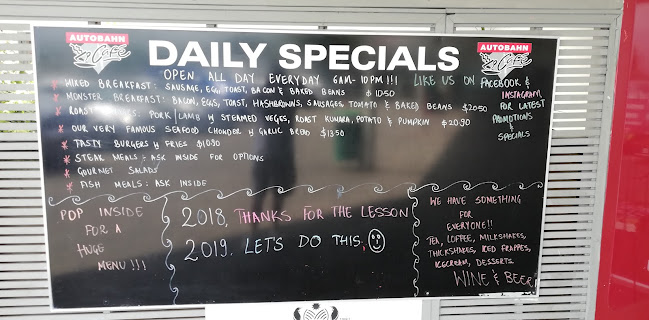 AUTOBAHN
Cafe
DAILY SPECIALS
AUTOBAHN
Cafe
OPEN ALL DAY EVERYDAY 6AM-10PM!!! LIKE US ON FACEBOOK &
INSTAGRAM
FOR LATEST
PROMOTIONS
&
SPECIALS
* MIXED BREAKFAST: SAUSAGE, EGG, TOAST, BACON & BAKED BEANS
* MONSTER BREAKFAST: BACON, EGGS, TOAST, HASHBROWNS, SAUSAGES, TOMATO & BAKED BEANS $20.50
* ROAST PORK/LAMB W STEAMED VEGES, ROAST KUMARA, POTATO & PUMPKIN $20.90
* OUR VERY FAMOUS SEAFOOD CHOWDER W GARLIC BREAD $13.50
* TASTY BURGERS W FRIES $10.90
* STEAK MEALS: ASK INSIDE FOR OPTIONS
* GOURMET SALADS
* FISH MEALS: ASK INSIDE
POP INSIDE
FOR A
HUGE
MENU !!!
2018, THANKS FOR THE LESSON
2019. LET'S DO THIS,
WE HAVE SOMETHING
FOR
EVERYONE!!
TEA, COFFEE, MILKSHAKES,
THICKSHAKES, ICED FRAPPES,
ICECREAM, DESSERTS.
WINE & BEER!